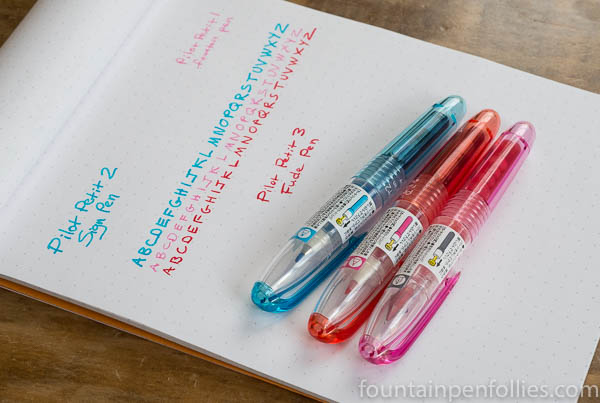 Pilot Petit 1
fountain pen
ABCDEFGHIJKLMNOPQRSTUVWXYZ
ABCDEFGHIJKLMNOPQRSTUVWXYZ
ABCDEFGHIJKLMNOPQRSTUVWXYZ
Pilot Petit 2
Sign Pen
Pilot Petit 3
Fude Pen
fountainpenfollies.com